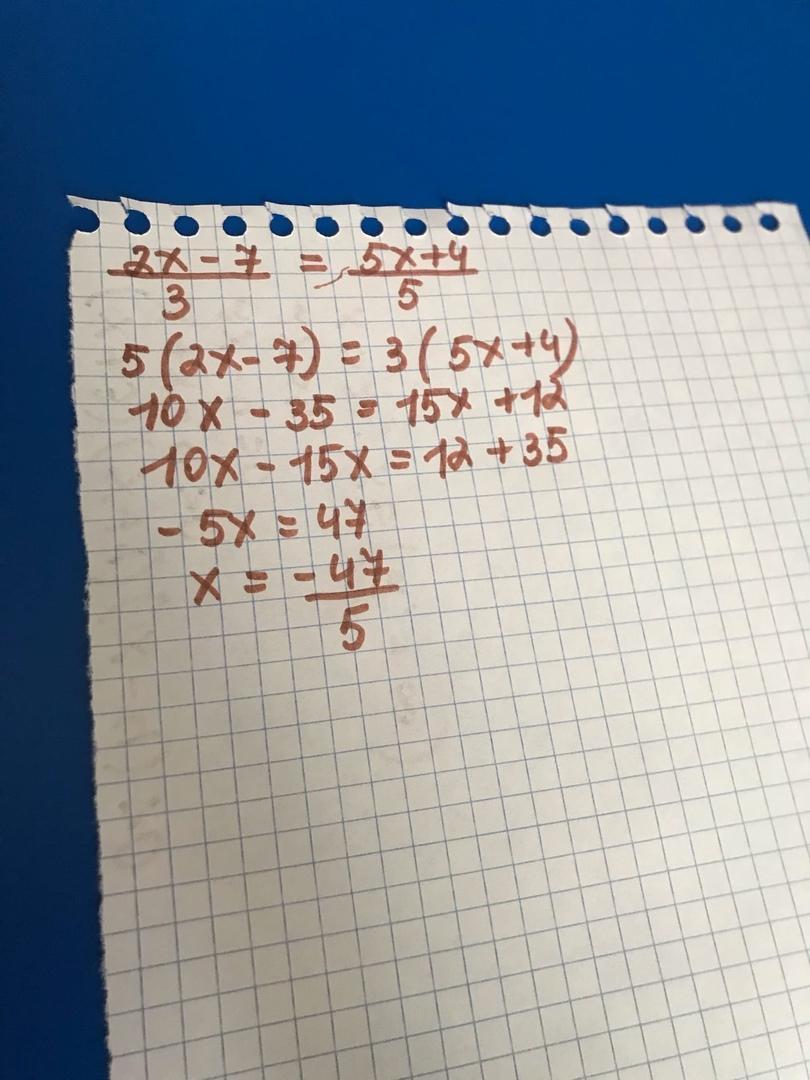 2x - 7 / 3 = 5x+4 / 5
5(2x - 7) = 3(5x+4)
10x - 35 = 15x +12
10x - 15x = 12 + 35
- 5x = 47
x = -47 / 5